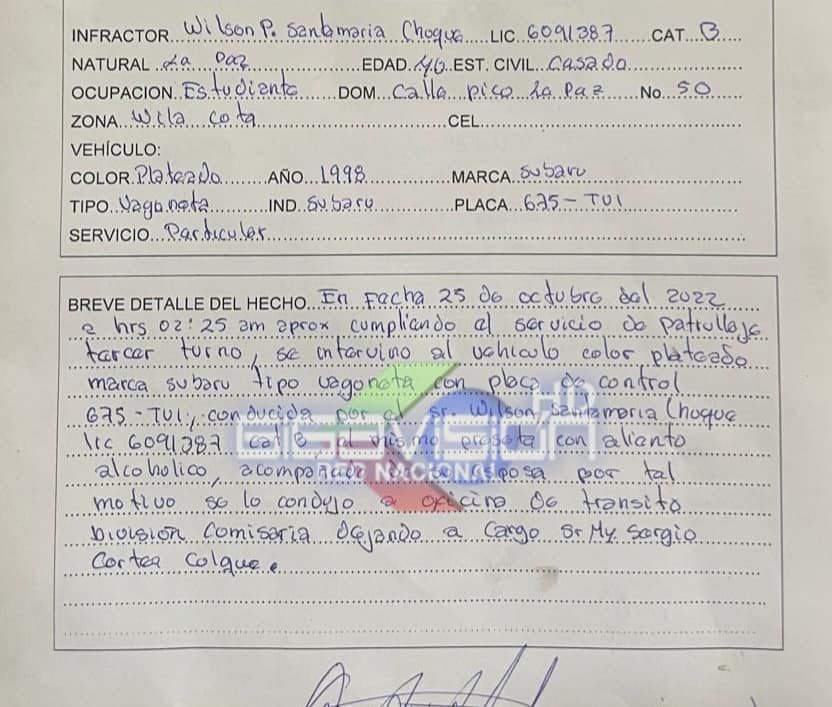 INFRACTOR Wilson P. Santamaria Choque LIC 6091387 CAT B
NATURAL La Paz EDAD 40 EST. CIVIL Casado
OCUPACION Estudiante DOM Calle pico La Paz No 50
ZONA Wila Cota CEL
VEHÍCULO:
COLOR Plateado AÑO 1998 MARCA Subaru
TIPO Vagoneta IND Subaru PLACA 675-TUI
SERVICIO Particular
BREVE DETALLE DEL HECHO En Fecha 25 de octubre del 2022
a hrs 02:25 am aprox cumpliendo el servicio de patrullaje
tercer turno, se intervino al vehiculo color plateado
marca subaru tipo vagoneta con placa de control
675-TUI, conducida por el sr. Wilson Santamaria Choque
lic 6091387 cat B, el mismo con aliento
alcoholico, acompañado esposa por tal
motivo se lo condujo a oficina de transito
Division Comisaria dejando a Cargo Sr My. Sergio
Cortez Colque.
GIGAVISION HD
RED NACIONAL